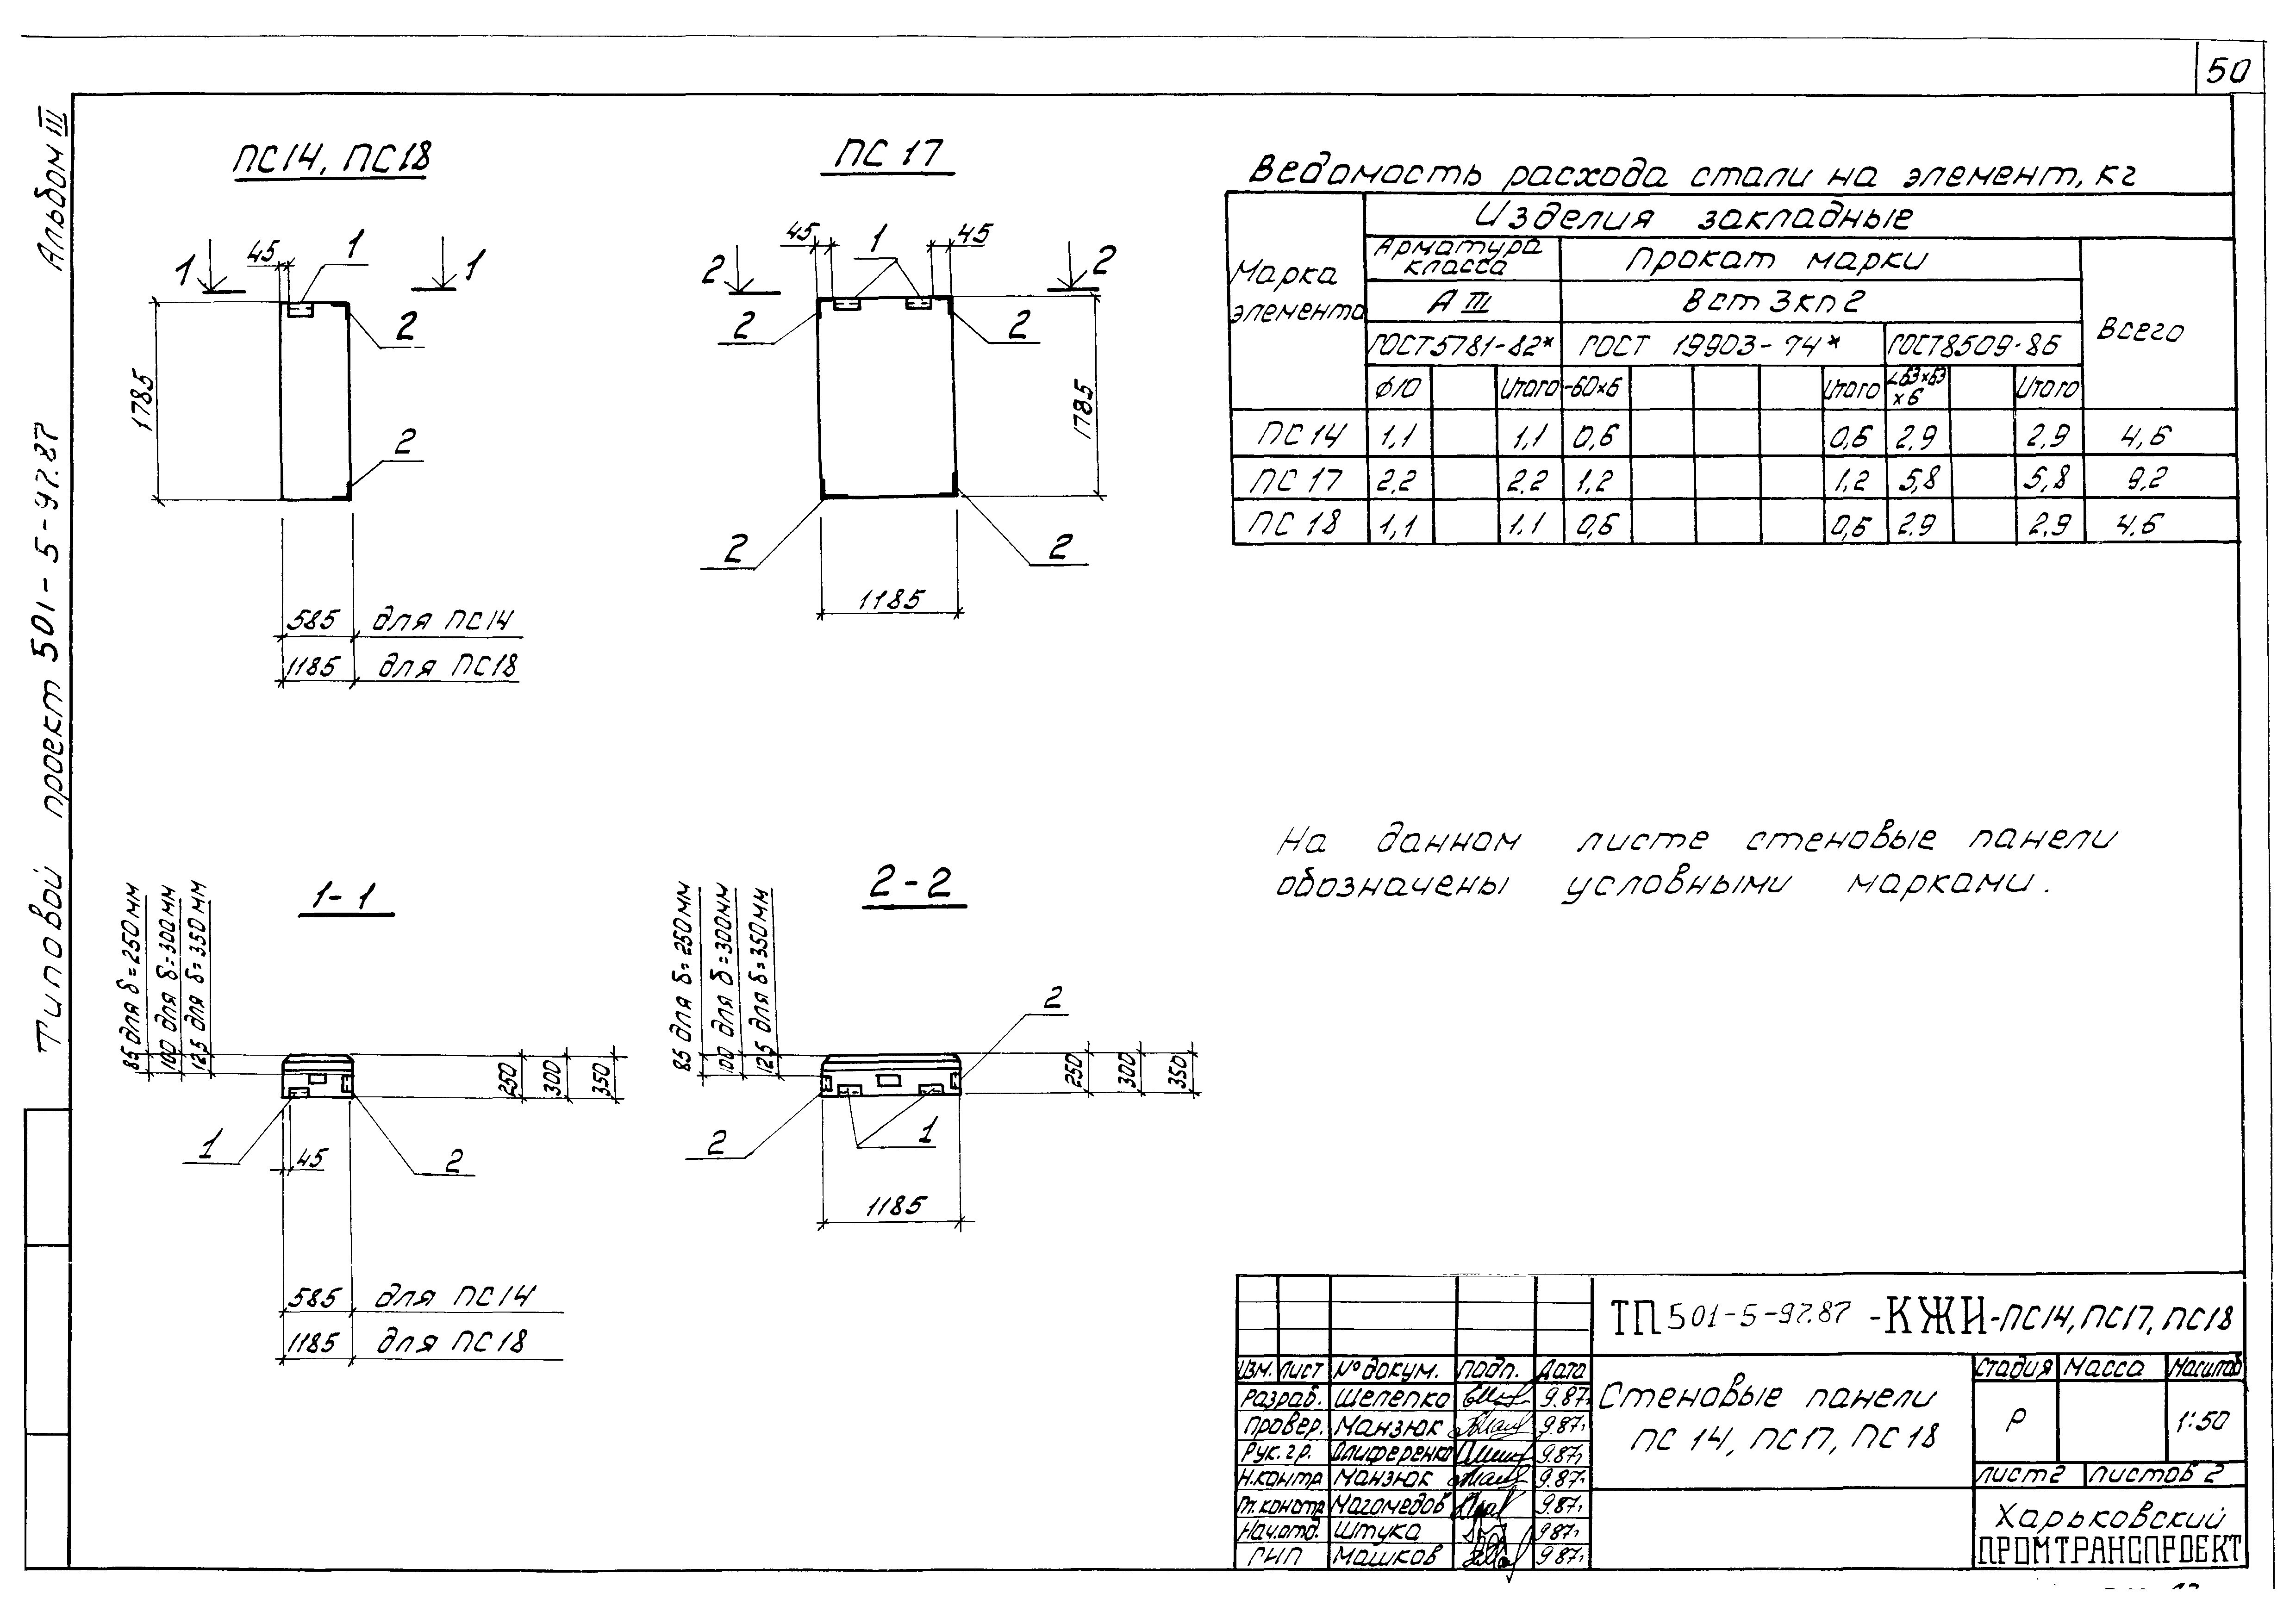 50
Альбом III
Типовой проект 501-5-97.87
ПС14, ПС18
45
1
1
1
2
2
1785
585 для ПС14
1185 для ПС18
ПС 17
45
1
45
2
2
2
2
1785
2
2
1185
Ведомость расхода стали на элемент, кг
Марка элемента
Изделия закладные
Арматура класса
Прокат марки
Всего
А III
Вст 3кп2
ГОСТ5781-82*
ГОСТ 19903-74*
ГОСТ8509-86
ф10
Итого
-60×6
Итого
∠63×63×6
Итого
ПС 14 1,1 1,1 0,6 0,6 2,9 2,9 4,6
ПС 17 2,2 2,2 1,2 1,2 5,8 5,8 9,2
ПС 18 1,1 1,1 0,6 0,6 2,9 2,9 4,6
На данном листе стеновые панели
обозначены условными марками.
1-1
85 для δ=250мм
100 для δ=300мм
125 для δ=350мм
250
300
350
1
45
2
585 для ПС14
1185 для ПС18
2-2
85 для δ=250мм
100 для δ=300мм
125 для δ=350мм
2
250
300
350
2
1
1185
ТП 501-5-97.87 -КЖИ-ПС14, ПС17, ПС18
Изм. Лист № докум. Подп. Дата
Разраб. Шелепко 9.87г
Провер. Манзюк 9.87г
Рук. гр. Олиференко 9.87г
Н.контр Манзюк 9.87г
Гл.констр Магомедов 9.87г
Нач.отд. Штука 9.87г
ГИП Машков 9.87г
Стеновые панели
ПС 14, ПС17, ПС 18
Стадия Масса Масштаб
Р 1:50
Лист 2 Листов 2
Харьковский
ПРОМТРАНСПРОЕКТ